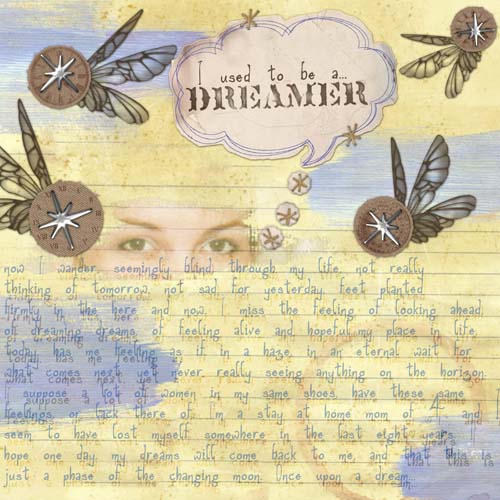 I used to be a...
DREAMER
now I wander, seemingly blind through my life, not really
thinking of tomorrow, not sad for yesterday, feet planted
firmly in the here and now, I miss the feeling of looking ahead,
of dreaming dreams, of feeling alive and hopeful, my place in life,
today, has me feeling as if in a haze, in an eternal wait for
what comes next, yet never really seeing anything on the horizon.
I suppose a lot of women in my same shoes have these same
feelings, or lack there of. I'm a stay at home mom of 4 and I
seem to have lost myself somewhere in the last eight years. I
hope one day my dreams will come back to me, and that this is
just a phase of the changing moon. Once upon a dream...